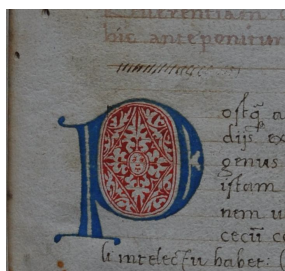 hic anteponitur
Postq̃ a
dijs ex
genus
istam
nem u
cecũ c
li intelectu habet: